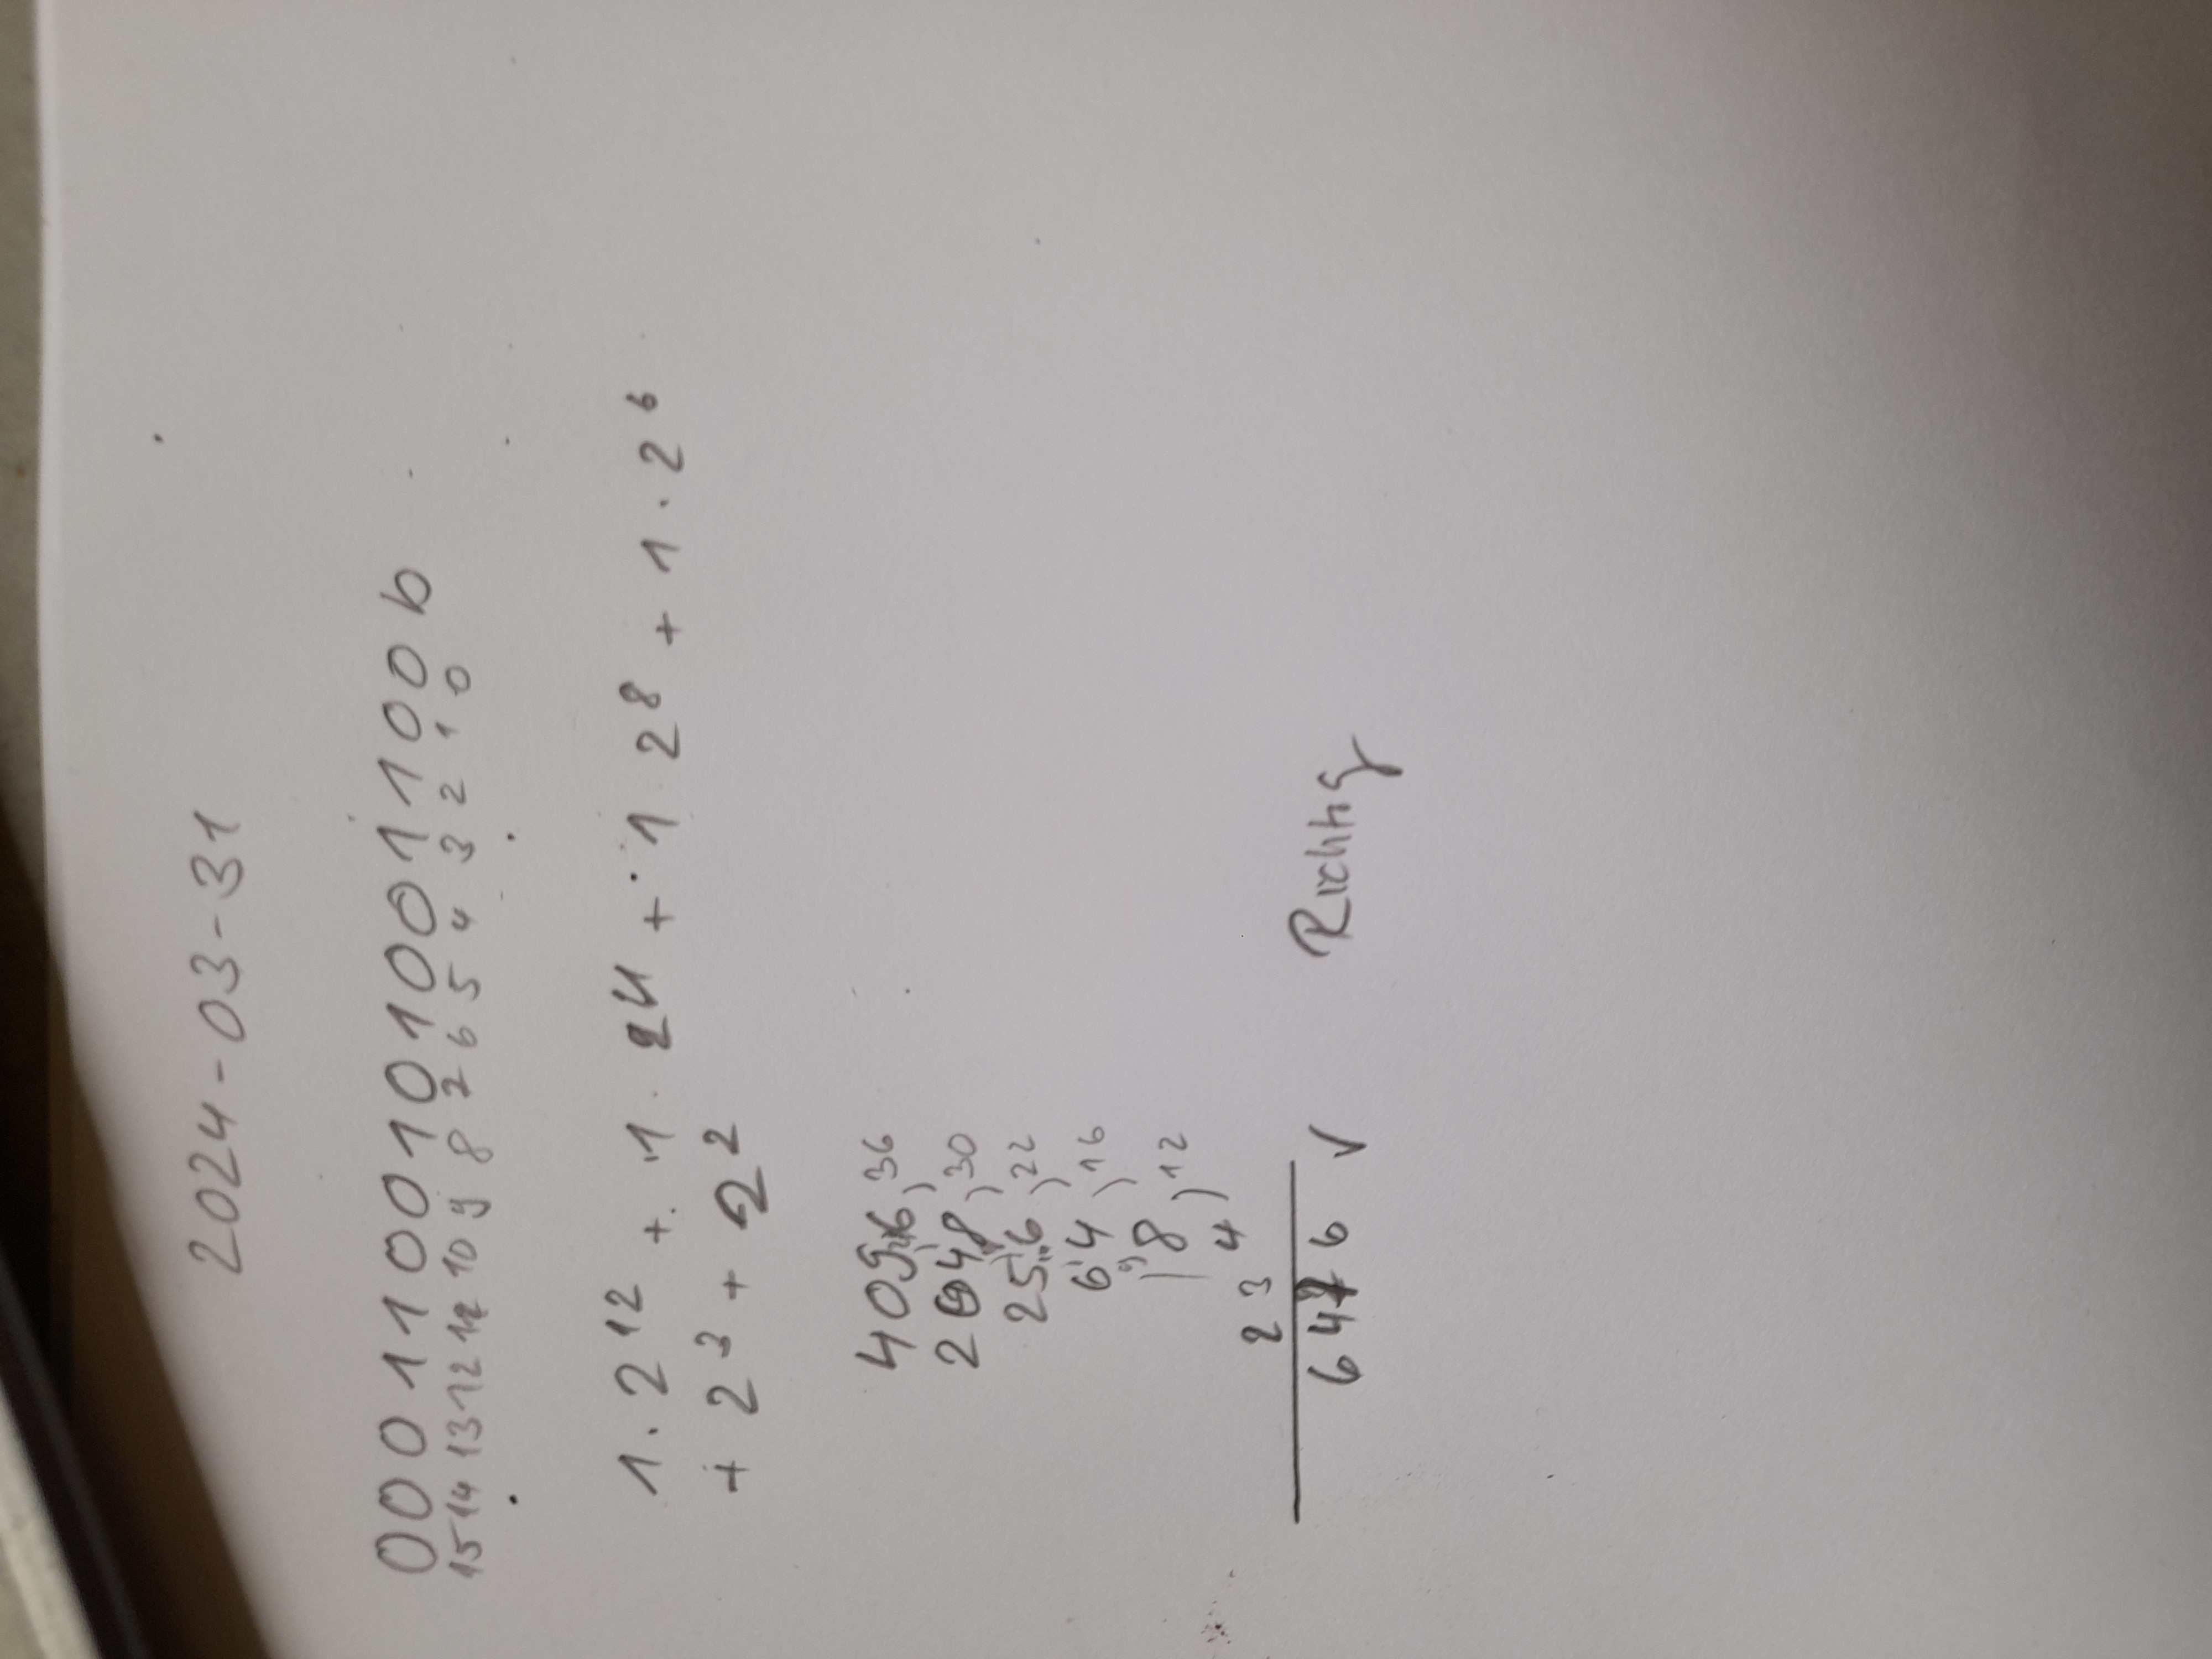 2024-03-31
0001100101001100b
15 14 13 12 11 10 9 8 7 6 5 4 3 2 1 0
1·2¹² + 1·2¹¹ + 1·2⁸ + 1·2⁶
+ 2³ + 2²
4096 )36
2048 )30
256 )22
64 )16
8 )12
4
2 3
6476 √ Richtig